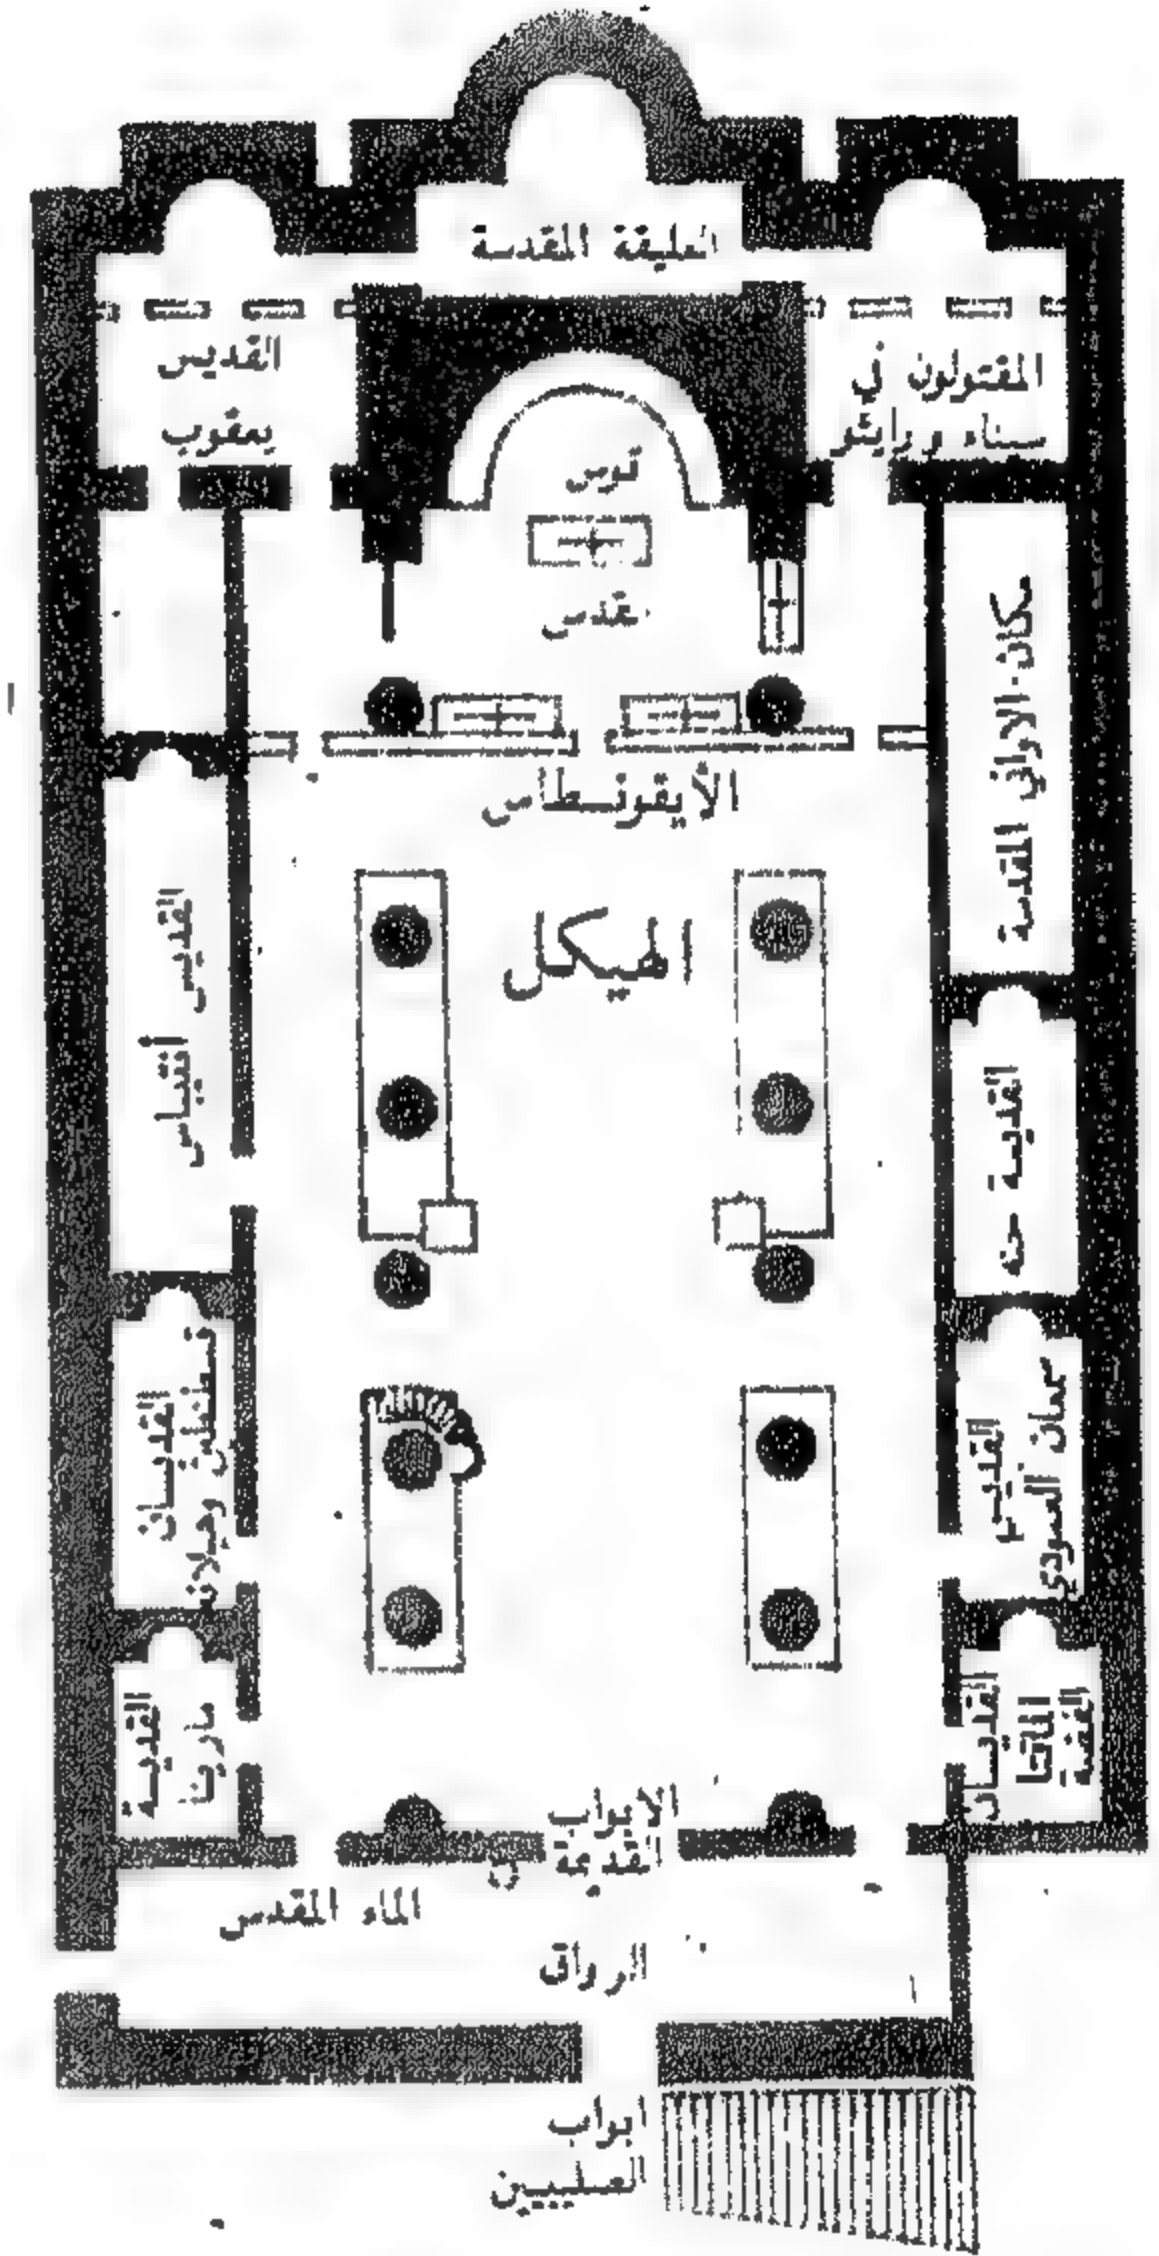 العليقة المقدسة
القديس
يعقوب
المقتولون في
سيناء ورايثو
قوس
مقدس
مكان الاواني المقدسة
الأيقونسطاس
الهيكل
القديس أنتيباس
القديسة حنه
القديسان
قسطنطين وهيلانه
القديس
سمعان العمودي
القديسة
مارينا
القديسان
الفضة
الابواب
القديمة
الماء المقدس
الرواق
ابواب
الصليبيين